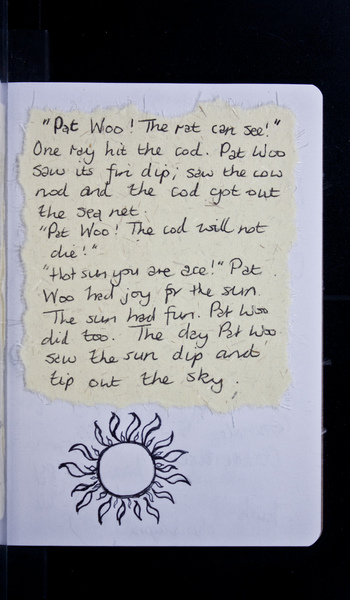 "Pat Woo! The rat can see!"
One ray hit the cod. Pat Woo
saw its fin dip; saw the cow
nod and the cod got out
the sea net.
"Pat Woo! The cod will not
die!"
"Hot sun you are ace!" Pat
Woo had joy for the sun.
The sun had fun. Pat Woo
did too. The day Pat Woo
saw the sun dip and
tip out the sky.